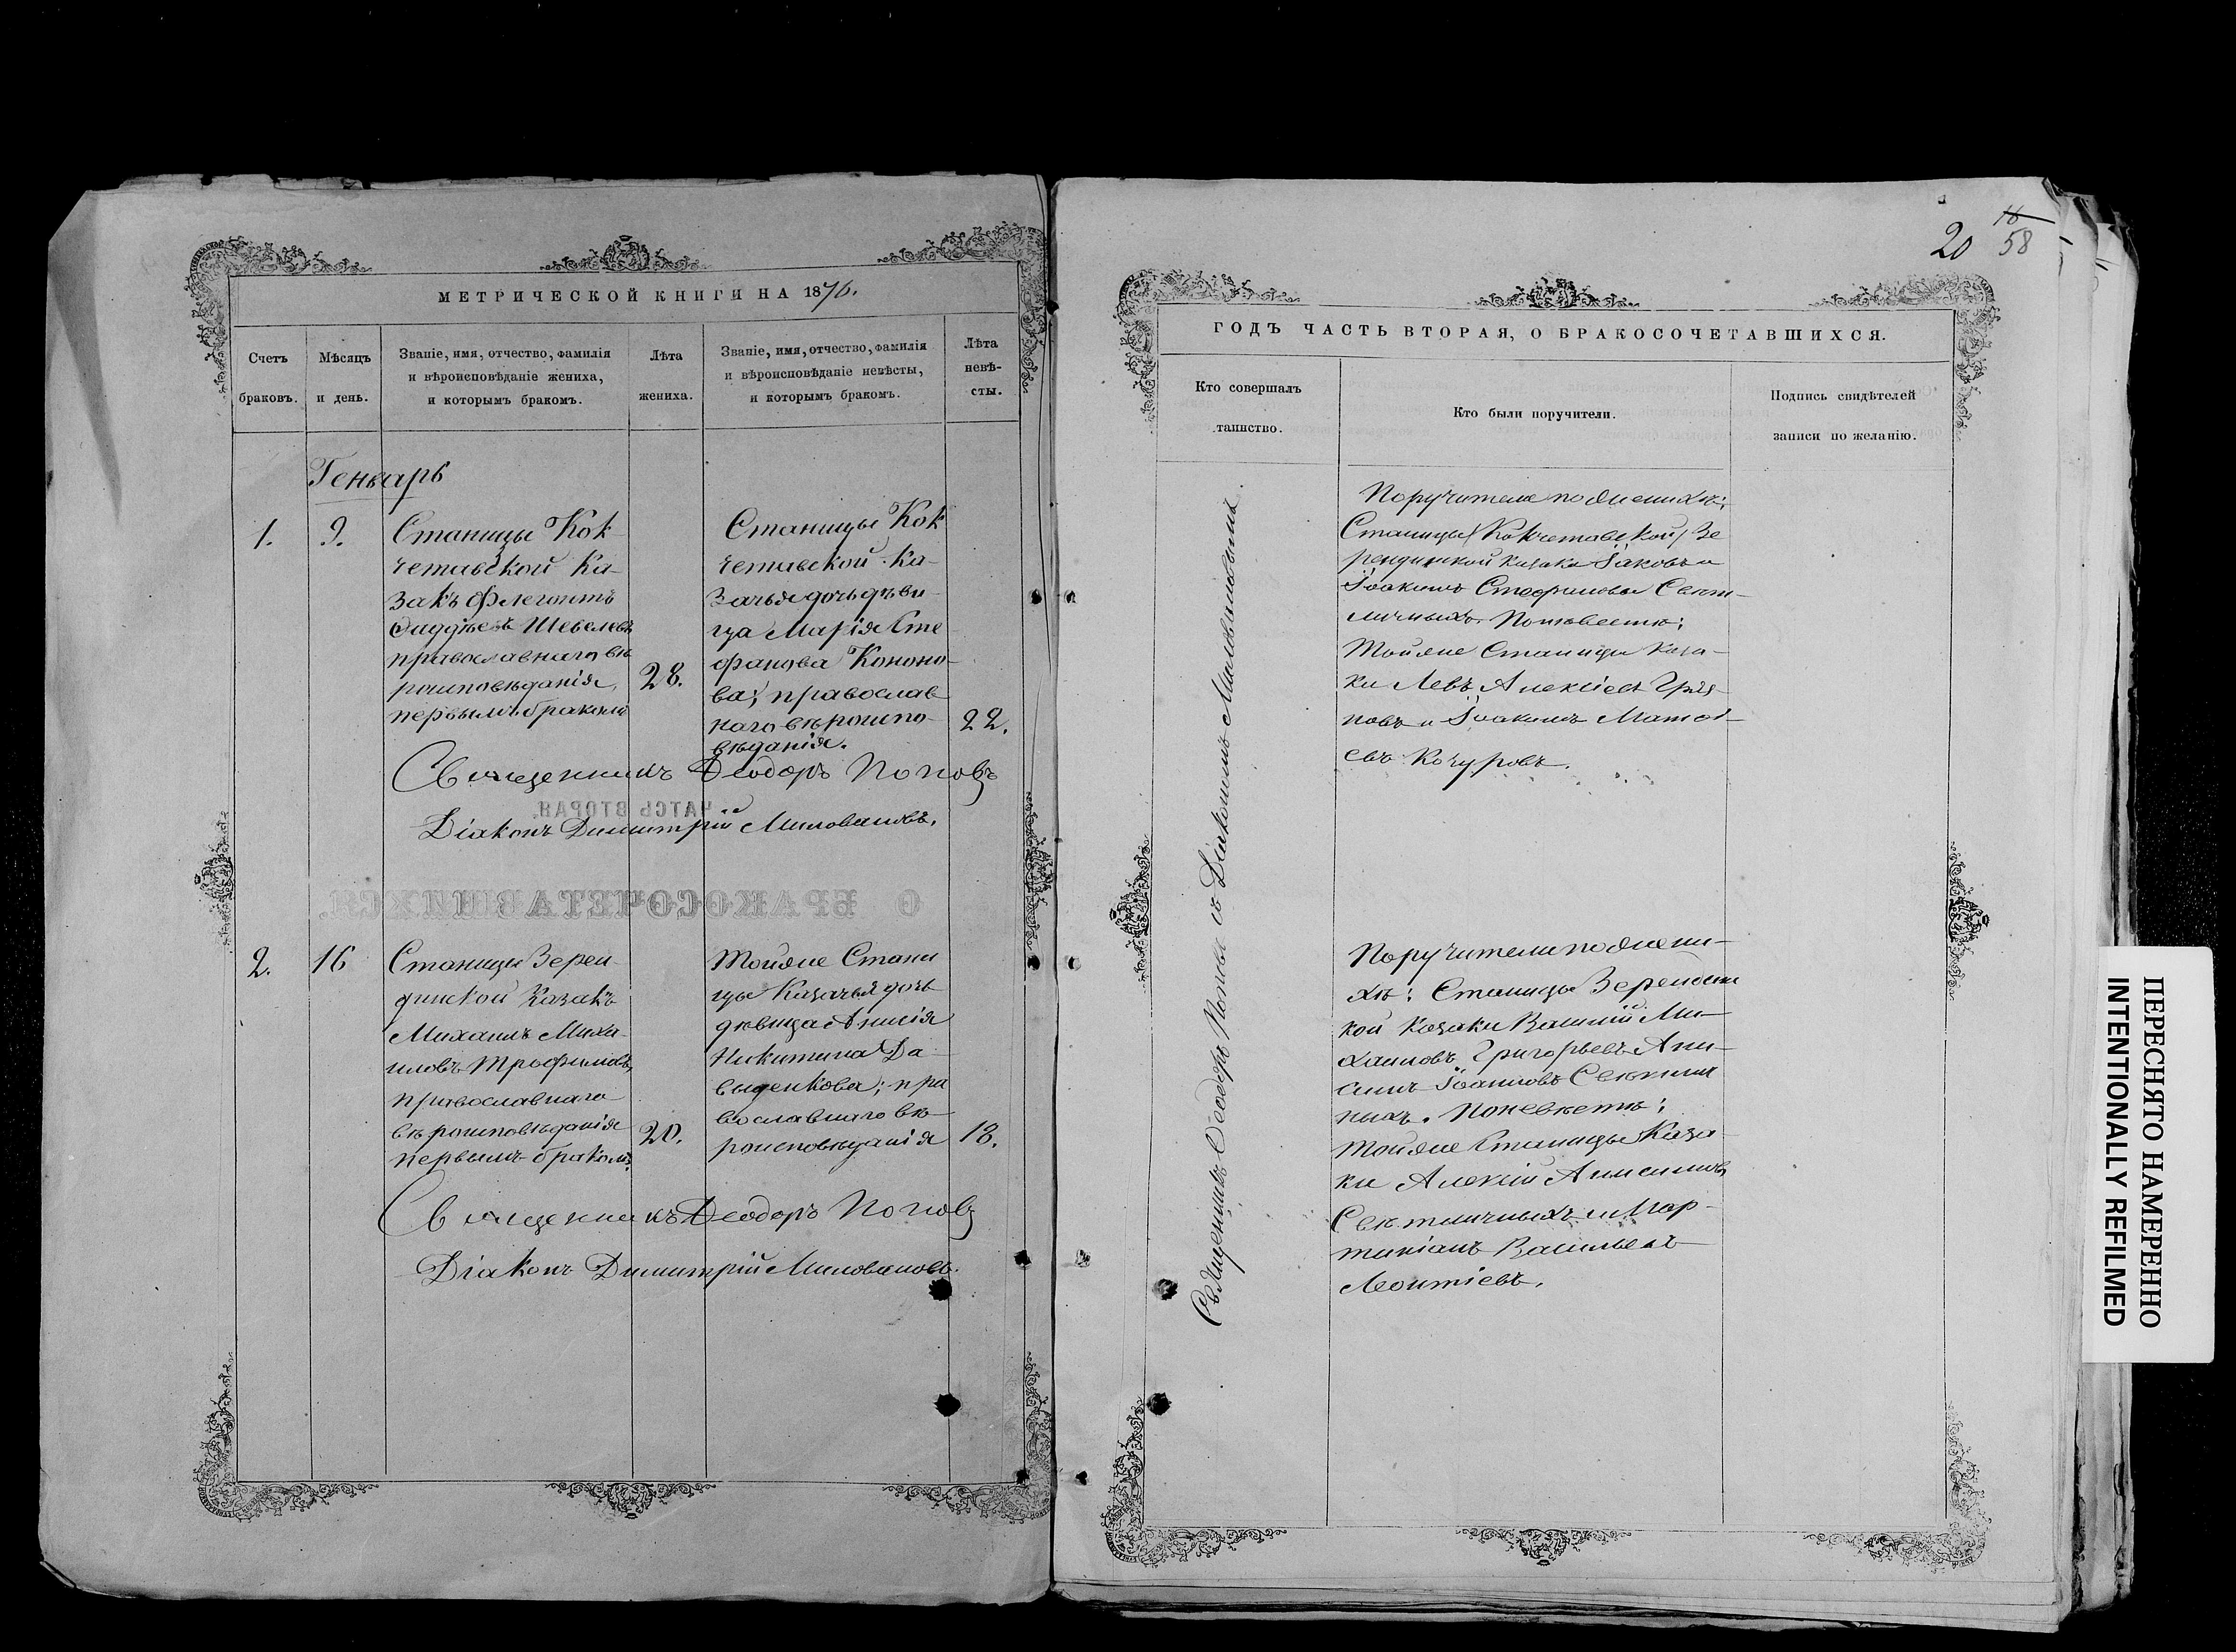 МЕТРИЧЕСКОЙ КНИГИ НА 1876.
Счетъ
браковъ.
Мѣсяцъ
и день.
Званіе, имя, отчество, фамилія
и вѣроисповѣданіе жениха,
и которымъ бракомъ.
Лѣта
жениха.
Званіе, имя, отчество, фамилія
и вѣроисповѣданіе невѣсты,
и которымъ бракомъ.
Лѣта
невѣ-
сты.
Генварь
1.
9.
Станицы Кок
четавской Ка-
закъ Флегонтъ
Фаддѣевъ Шевелевъ
православнаго вѣ
роисповѣданія,
первымъ бракомъ
28.
Станицы Кок
четавской Ка-
зачья дочь дѣви-
ца Марія Сте
фанова Кононо-
ва; православ
наго вѣроиспо-
вѣданія.
22.
Священникъ Ѳеодоръ Поповъ
Діаконъ Димитрій Миловановъ.
ЧАСТЬ ВТОРАЯ.
О БРАКОСОЧЕТАВШИХСЯ.
2.
16
Станицы Зерен-
динской Казакъ
Михаилъ Миха-
иловъ Трофимовъ,
православнаго
вѣроисповѣданія
первымъ бракомъ.
20.
Тойже Стани
цы Казачья дочь
дѣвица Анисія
Никитина Да-
выденкова; пра
вославнаго вѣ-
роисповѣданія
18.
Священникъ Ѳеодоръ Поповъ
Діаконъ Димитрій Миловановъ.
20
16
58
ГОДЪ ЧАСТЬ ВТОРАЯ, О БРАКОСОЧЕТАВШИХСЯ.
Кто совершалъ
таинство.
Кто были поручители.
Подпись свидѣтелей
записи по желанію.
Священникъ Ѳеодоръ Поповъ съ Діакономъ Миловановымъ.
Поручители по женихѣ:
Станицы (Кокчетавской) Зе
рендинской казаки Іаковъ и
Іоакимъ Стефановы Свѣт-
личныхъ. По невѣстѣ:
Тойже Станицы Каза-
ки Левъ Алексіевъ
и Іоакимъ Матѳі-
евъ Кочуровъ.
Поручители по жени-
хѣ: Станицы Зерендинс
кой Козаки Василій Ми-
хаиловъ Григорьевъ Ани-
симъ Іоанновъ
По невѣстѣ:
Тойже Станицы Каза-
ки Алексій Анисимовъ
Свѣтличныхъ и Мар-
тиніанъ Васильевъ
Леонтіевъ.
ПЕРЕСНЯТО НАМЕРЕННО
INTENTIONALLY REFILMED